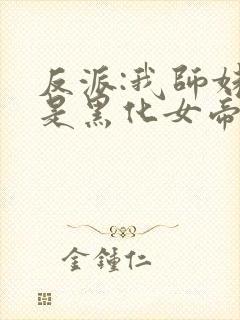 反派:我師姊
是黑化女帝
金鍾仁